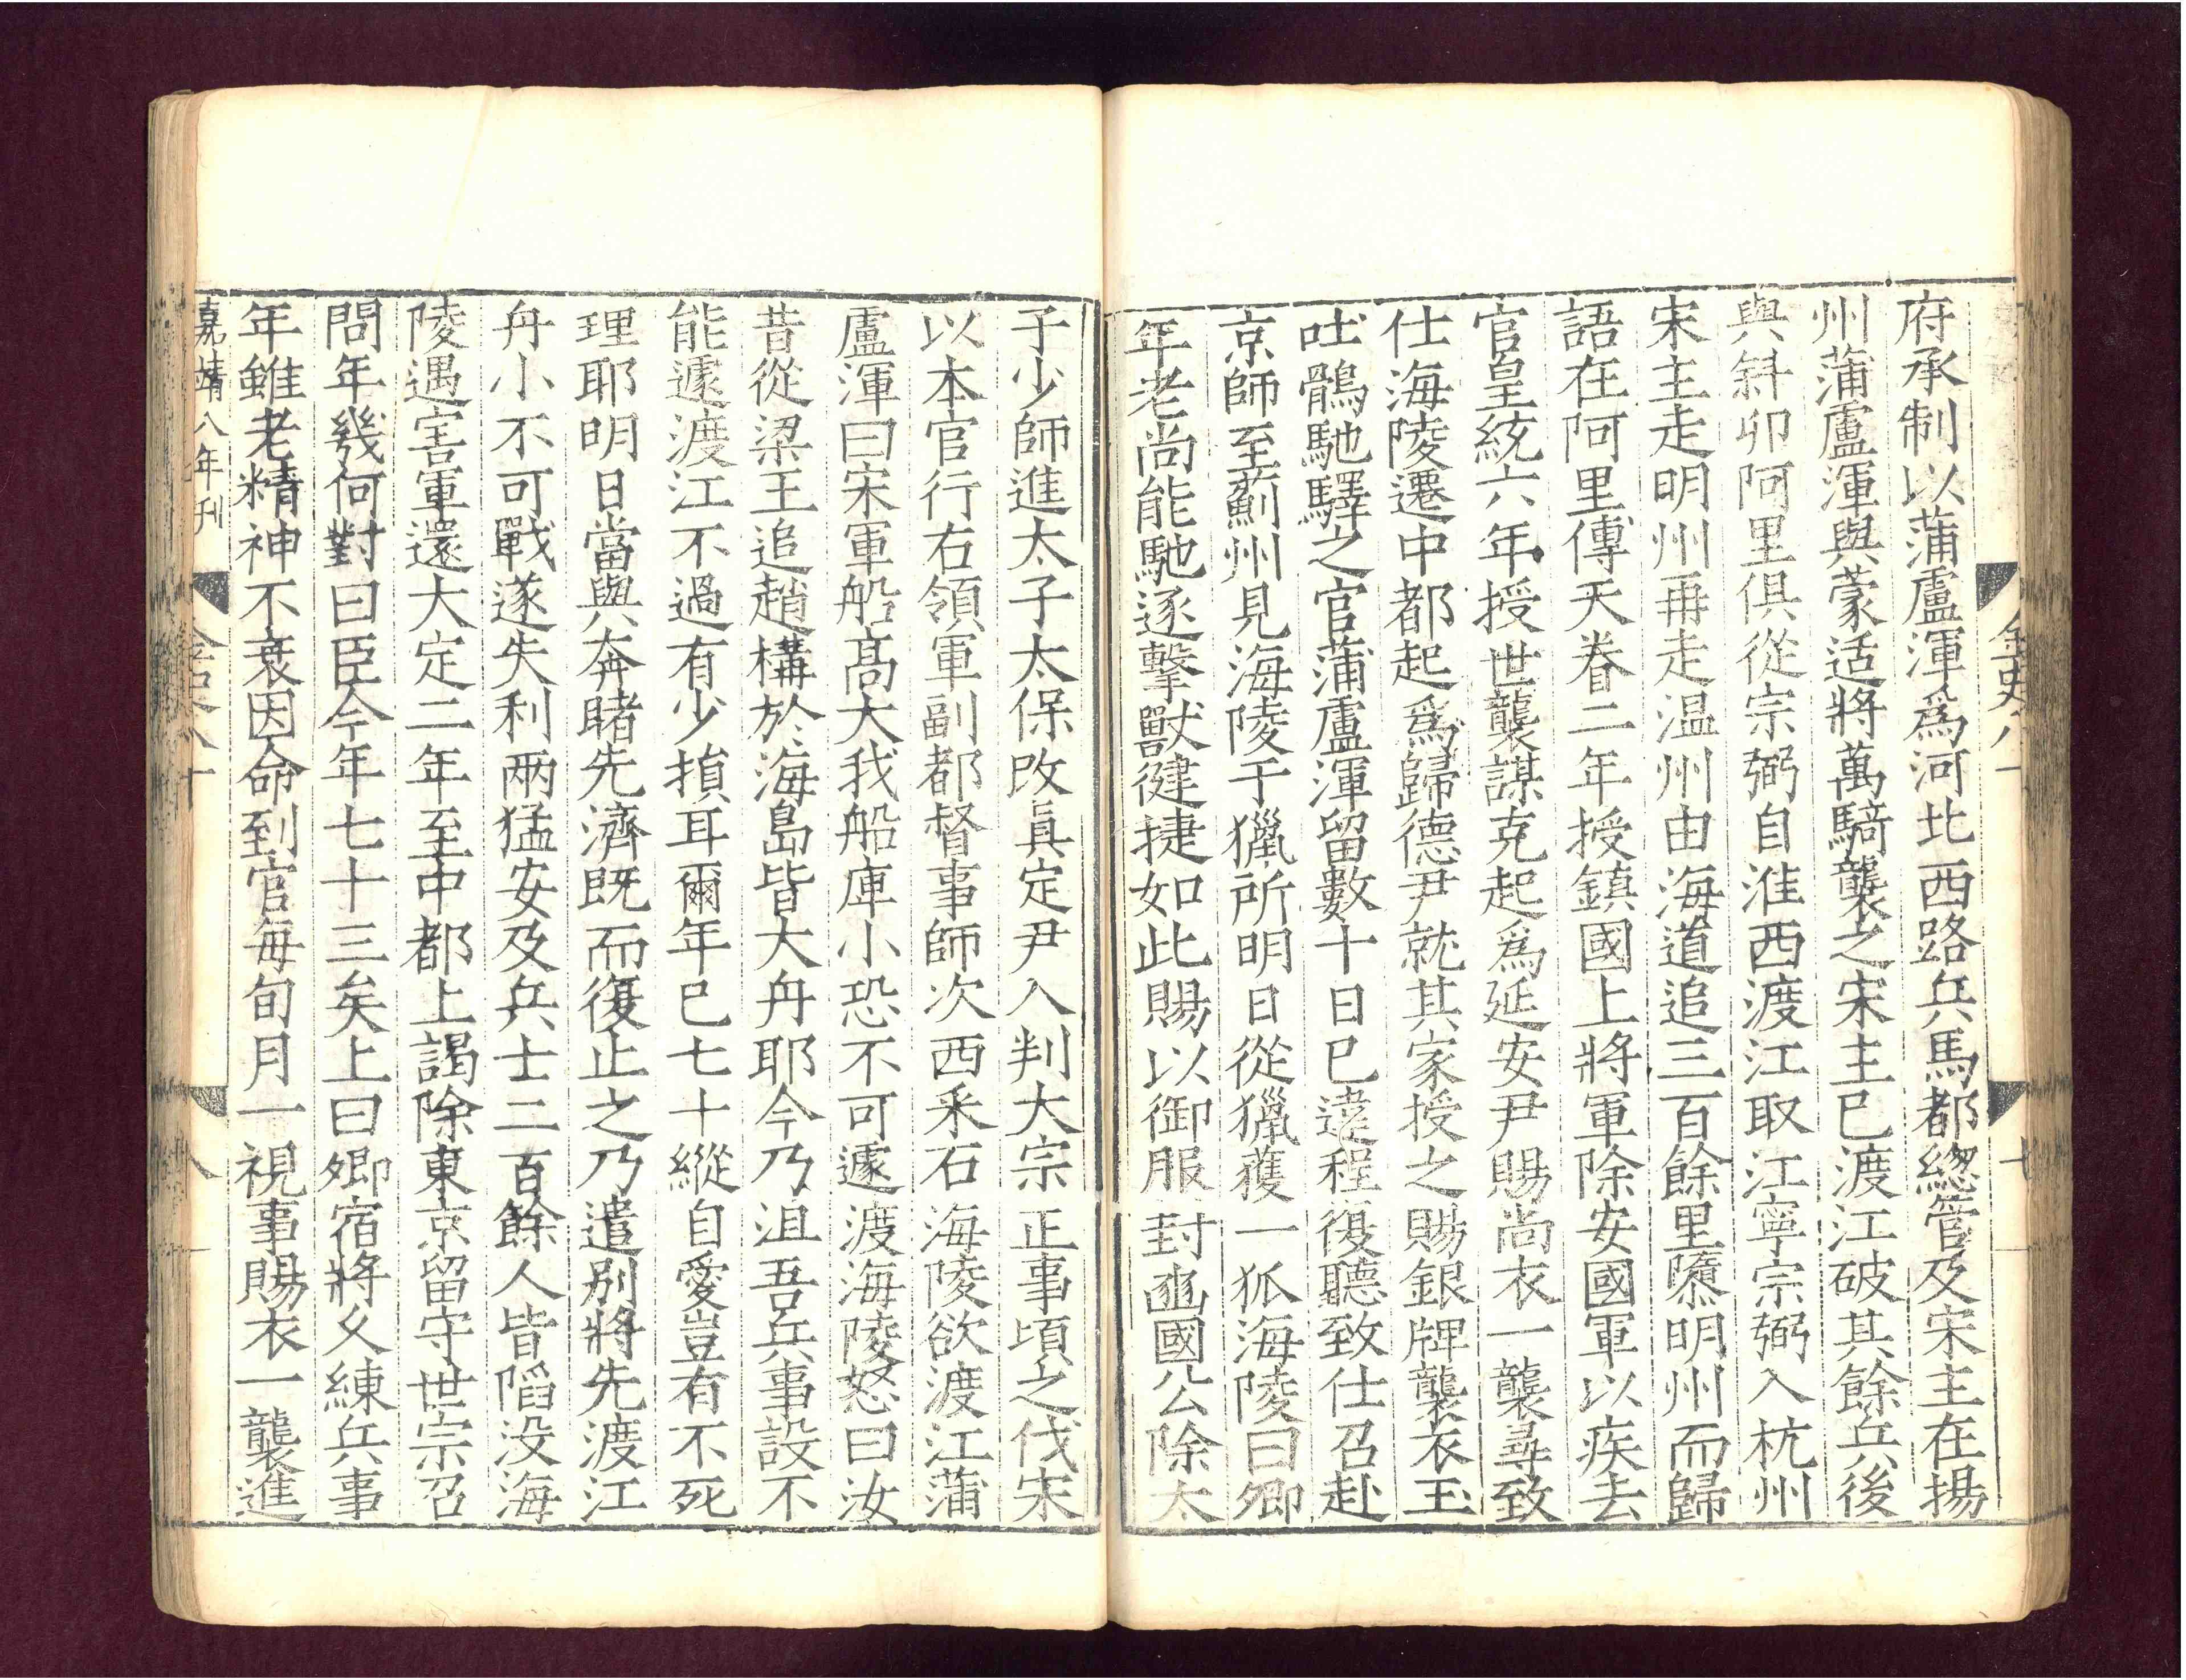 府承制以蒲盧渾爲河北西路兵馬都緫管及宋主在揚
州蒲盧渾與蒙适將萬騎襲之宋主已渡江破其餘兵後
與斜卯阿里俱從宗弼自淮西渡江取江寧宗弼入杭州
宋主走明州再走温州由海道追三百餘里隳明州而歸
語在阿里傳天眷二年授鎮國上將軍除安國軍以疾去
官皇統六年授世襲謀克起爲延安尹賜尚衣一襲尋致
仕海陵遷中都起爲歸德尹就其家授之賜銀牌襲衣玉
吐鶻馳驛之官蒲盧渾留數十日已違程復聽致仕召赴
京師至薊州見海陵于獵所明日從獵獲一狐海陵曰卿
年老尚能馳逐擊獸健捷如此賜以御服封豳國公除太
子少師進太子太保改眞定尹入判大宗正事頃之伐宋
以本官行右領軍副都督事師次西采石海陵欲渡江蒲
盧渾曰宋軍船髙大我船庳小恐不可遽渡海陵怒曰汝
昔從梁王追趙構於海島皆大舟耶今乃沮吾兵事設不
能遽渡江不過有少損耳爾年已七十縱自愛豈有不死
理耶明日當與奔睹先濟既而復止之乃遣别將先渡江
舟小不可戰遂失利兩猛安及兵士二百餘人皆陷没海
陵遇害軍還大定二年至中都上謁除東京留守世宗召
問年幾何對曰臣今年七十三矣上曰卿宿將久練兵事
年雖老精神不衰因命到官每旬月一視事賜衣一襲進
嘉靖八年刊